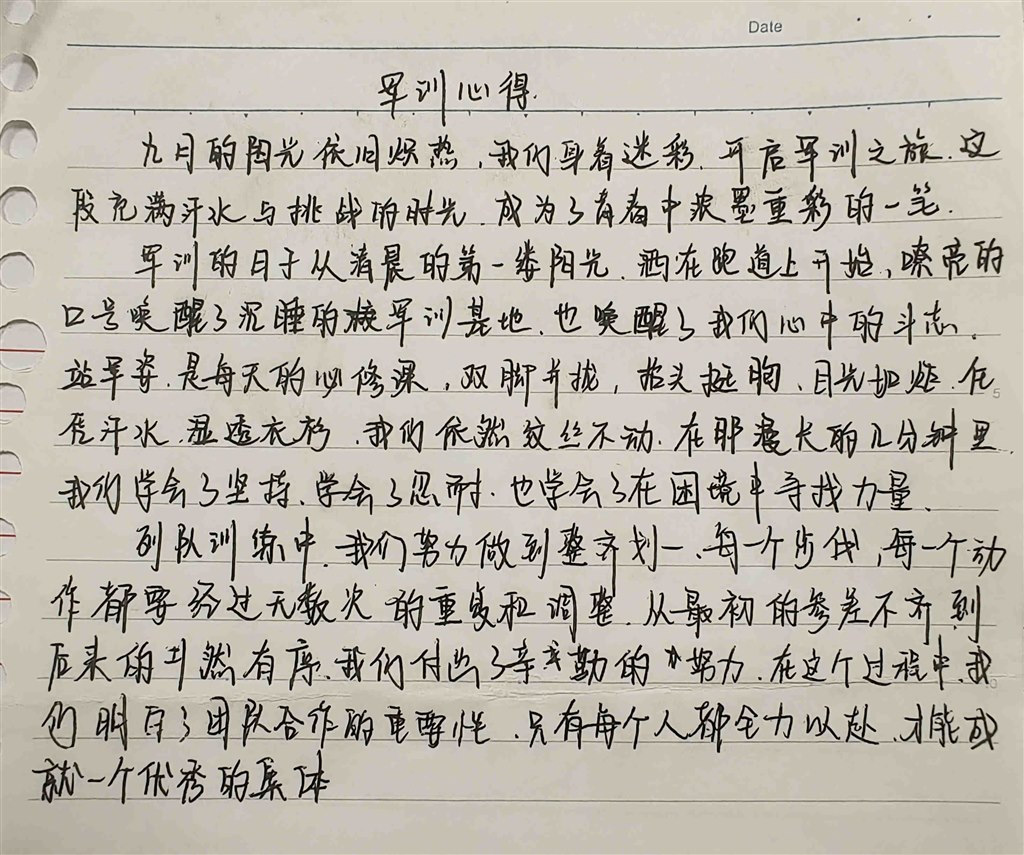 Date
军训心得.
九月的阳光依旧炽热,我们身着迷彩.开启军训之旅.这
段充满汗水与挑战的时光.成为了青春中浓墨重彩的一笔.
军训的日子从清晨的第一缕阳光.洒在跑道上开始,嘹亮的
口号唤醒了沉睡的军训基地.也唤醒了我们心中的斗志.
站军姿.是每天的必修课,双脚并拢,抬头挺胸.目光如炬.任
凭汗水.湿透衣衫.我们依然纹丝不动.在那漫长的几分钟里.
我们学会了坚持.学会了忍耐.也学会了在困境中寻找力量.
列队训练中.我们努力做到整齐划一.每一个步伐,每一个动
作都要经过无数次的重复和调整.从最初的参差不齐到
后来的井然有序.我们付出了辛勤的努力.在这个过程中.我
们明白了团队合作的重要性.只有每个人都全力以赴.才能成
就一个优秀的集体
5